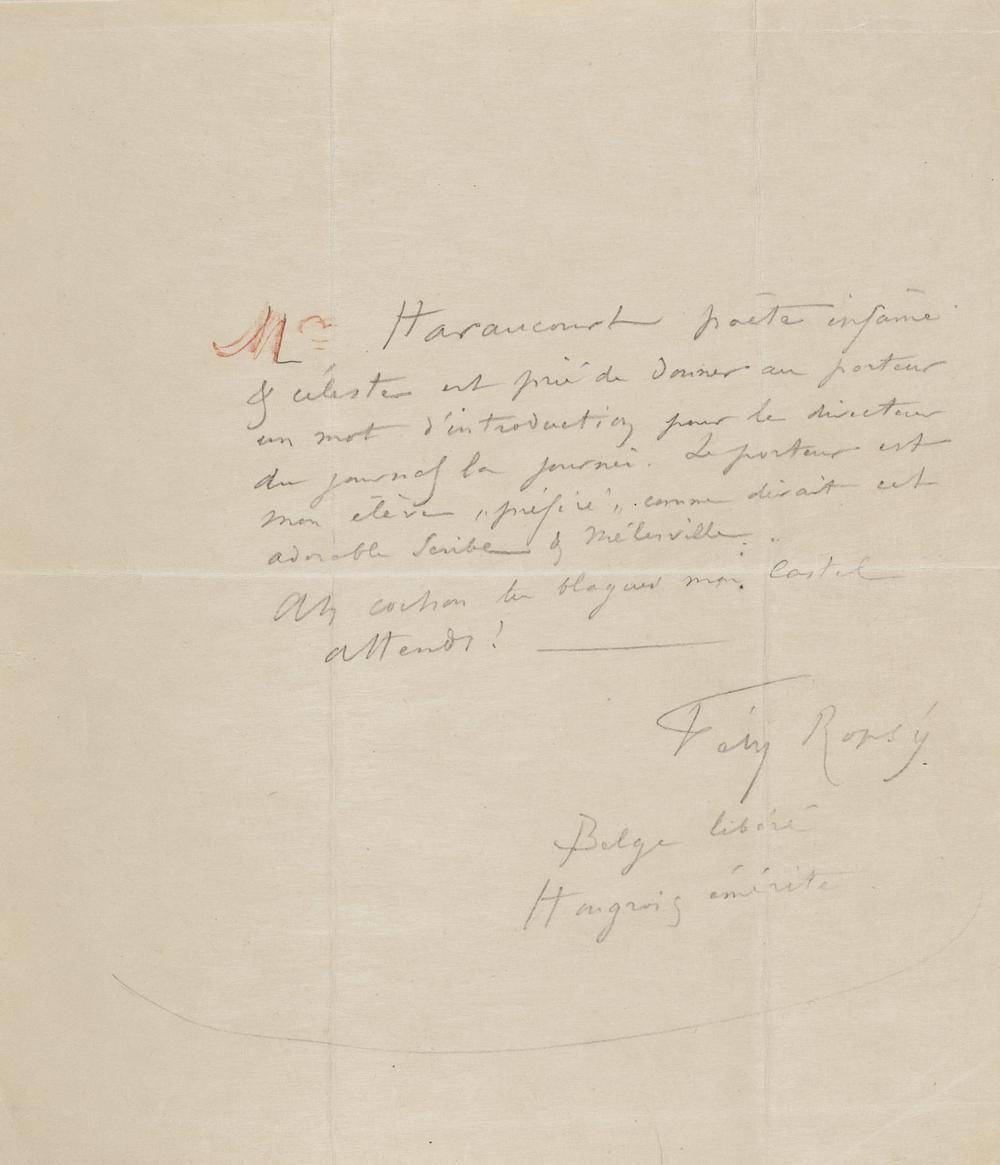 Mr Haraucourt poëte infâme
& céleste est prié de donner au porteur
un mot d'introduction pour le directeur
du journal la journée. Le porteur est
mon élève „préféré„ comme dirait cet
adorable Scribe & Mélesville..
Ah cochon tu blagues mon Castel
attends!
Fély Ropsy
Belge libéré
Hongrois émérite